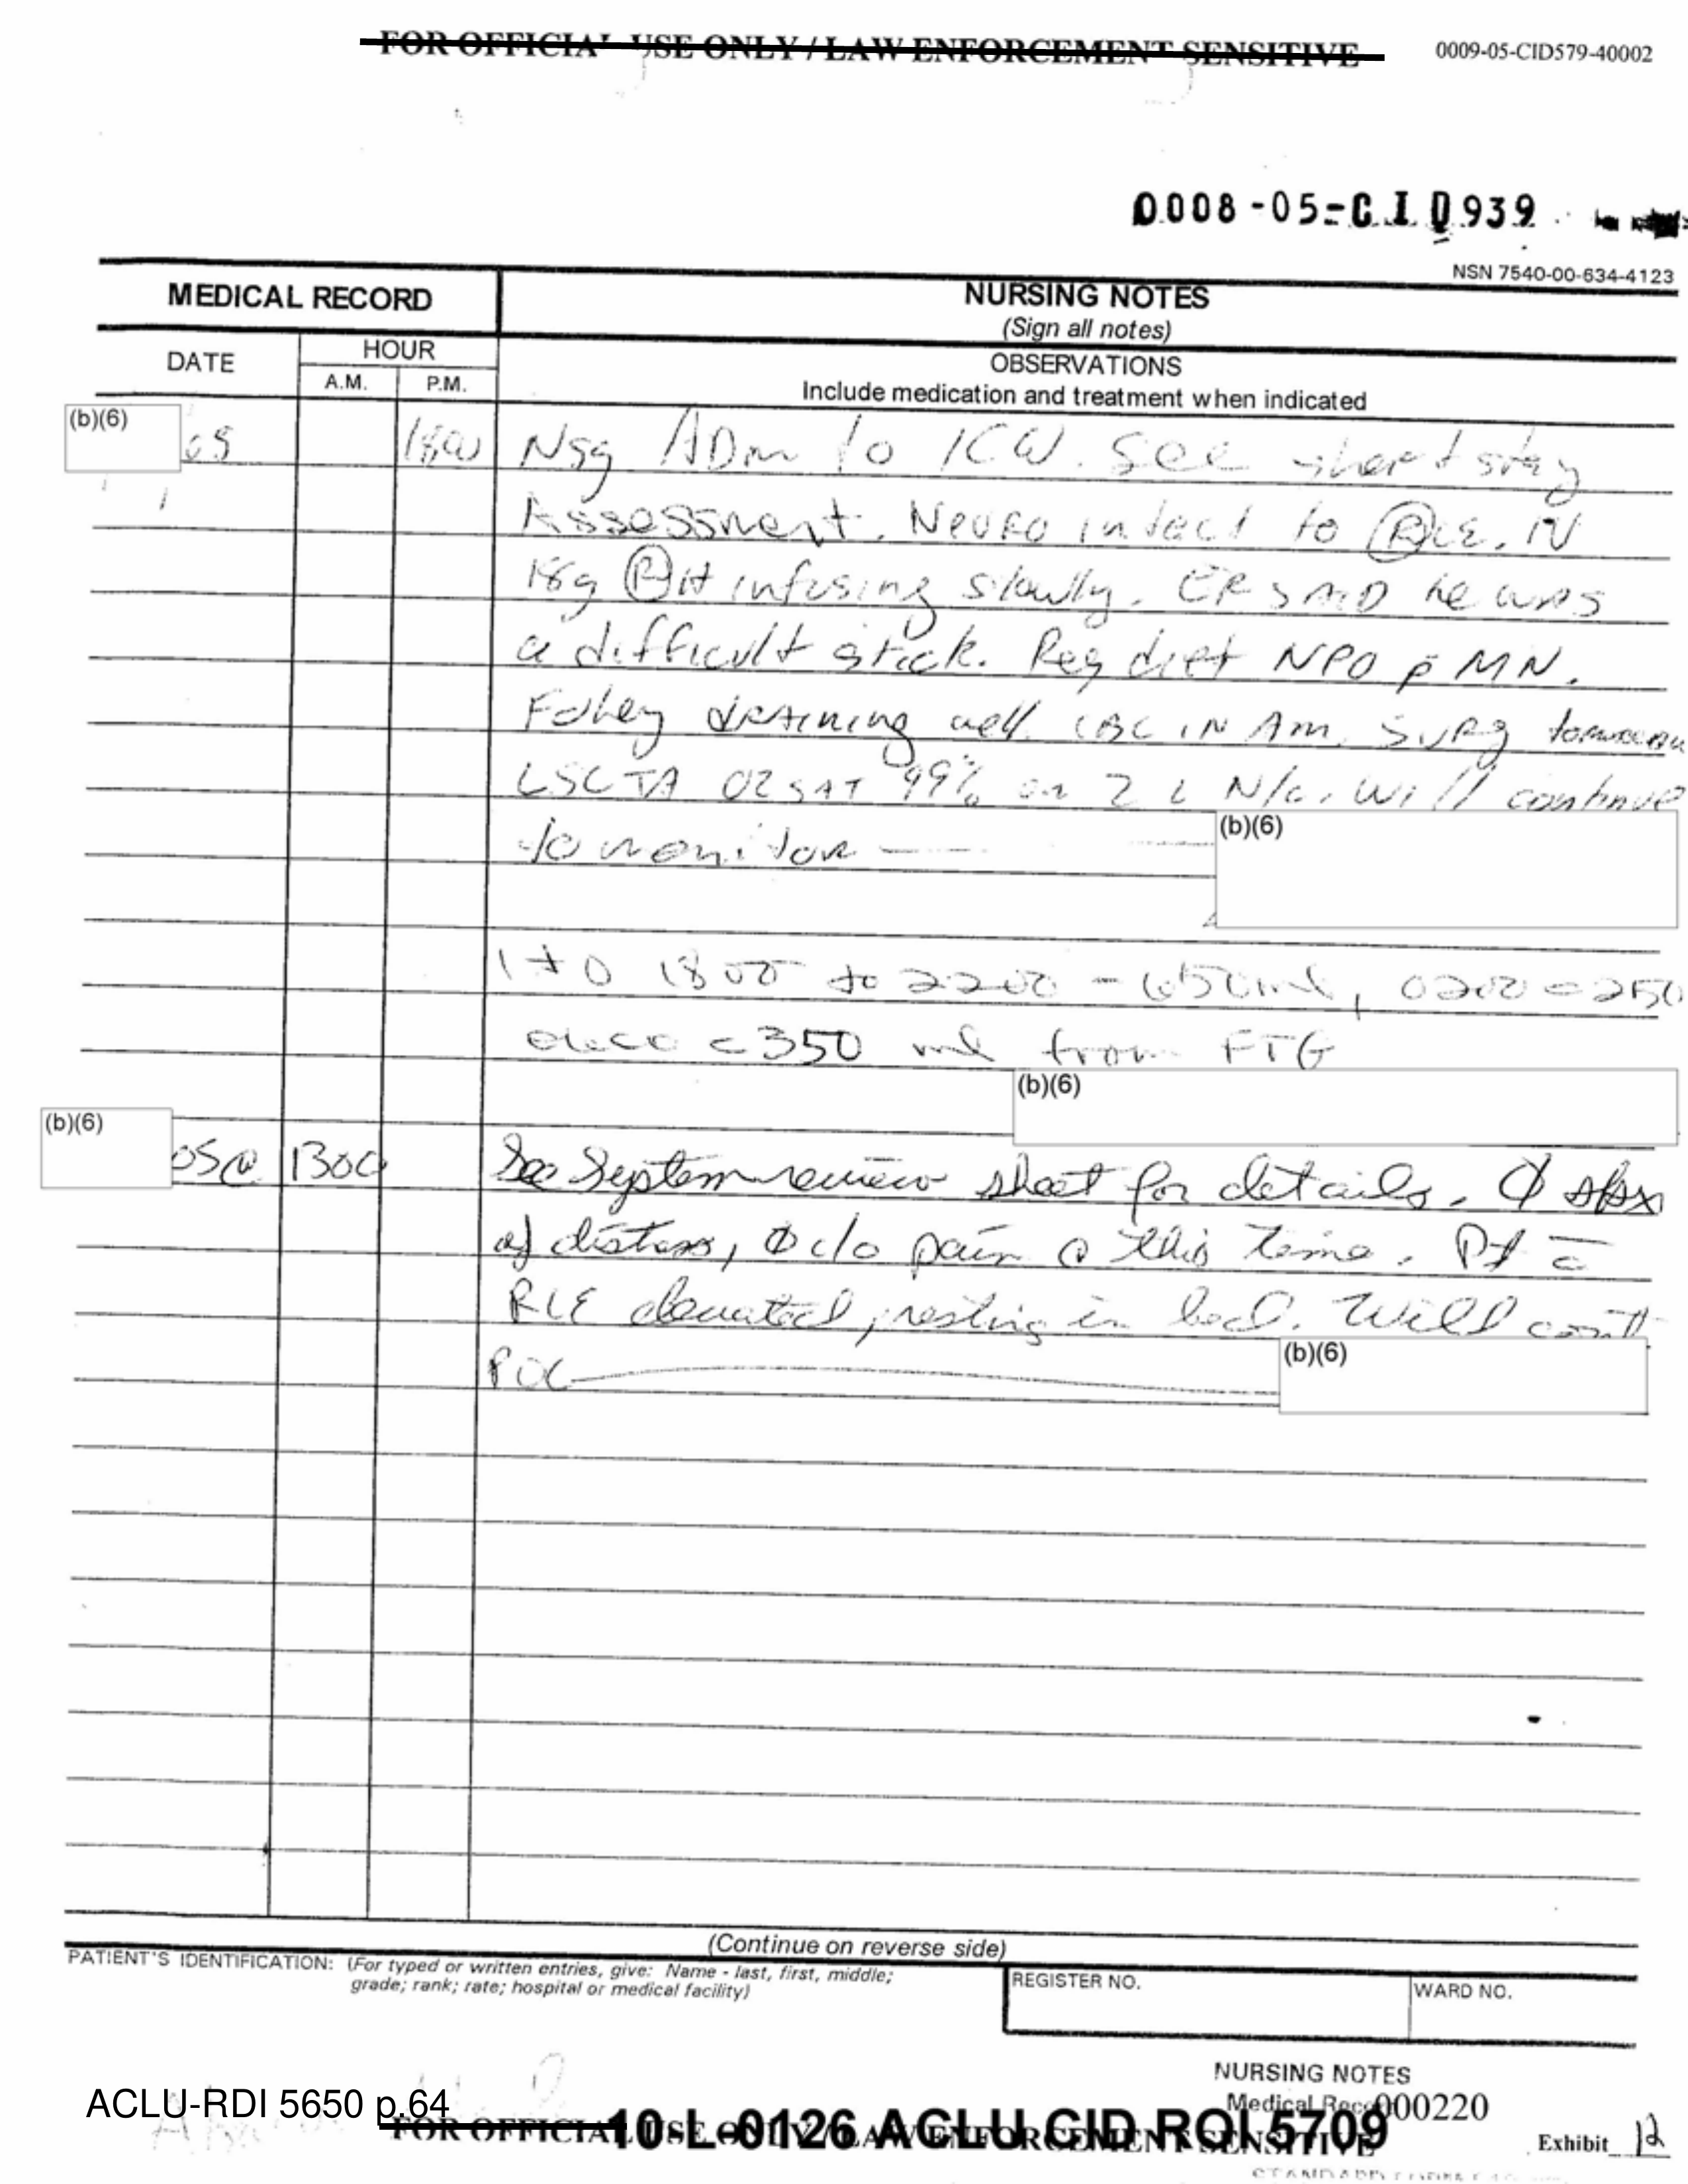 FOR OFFICIAL USE ONLY / LAW ENFORCEMENT SENSITIVE
0009-05-CID579-40002
0008-05-CID939
NSN 7540-00-634-4123
MEDICAL RECORD
NURSING NOTES
(Sign all notes)
DATE
HOUR
A.M.
P.M.
OBSERVATIONS
Include medication and treatment when indicated
(b)(6) 05 1800 Nsg ADm to ICW. See short stay
Assessment. Neuro intact to Ⓡ LE. IV
18g Ⓡ infusing slowly. ER SAID he was
a difficult stick. Reg diet NPO p̄ MN.
Foley draining well. CBC IN Am. Surg tomorrow
LSCTA O2 SAT 99% on 2 L N/C. Will continue
to monitor
(b)(6)
I+O 1800 to 2200 = 650ml, 0200 = 250
= 350 ml from FTG
(b)(6)
(b)(6) 05@ 1300 See System review sheet for details. Ø s/sx
of distress, Ø c/o pain @ this time. Pt c̄
RLE elevated, resting in bed. Will cont
POC
(b)(6)
(Continue on reverse side)
PATIENT'S IDENTIFICATION: (For typed or written entries, give: Name - last, first, middle;
grade; rank; rate; hospital or medical facility)
REGISTER NO.
WARD NO.
NURSING NOTES
Medical Record
000220
ACLU-RDI 5650 p.64
FOR OFFICIAL USE ONLY / LAW ENFORCEMENT SENSITIVE
10-L-0126 ACLU CID ROI 5709
Exhibit 12
STANDARD FORM